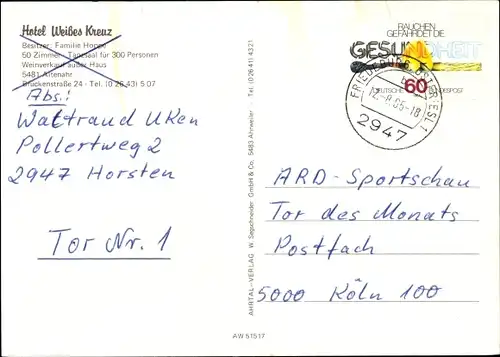 Hotel Weißes Kreuz
Besitzer: Familie
60 Zimmer - Tanzsaal für 300 Personen
Weinverkauf außer Haus
5481 Altenahr
Brückenstraße 24 - Tel. (0 26 43) 5 07
Abs.:
Waltraud Uken
Pollertweg 2
2947 Horsten
Tor Nr. 1
AHRTAL-VERLAG W. Segschneider GmbH & Co. 5483 Ahrweiler - Tel. (0 26 41) 43 21
AW 51517
RAUCHEN
GEFÄHRDET DIE
GESUNDHEIT
60
DEUTSCHE BUNDESPOST
FRIEDEBURG, OSTFRIESL 1
12.-8.85-18
2947
ARD-Sportschau
Tor des Monats
Postfach
5000 Köln 100